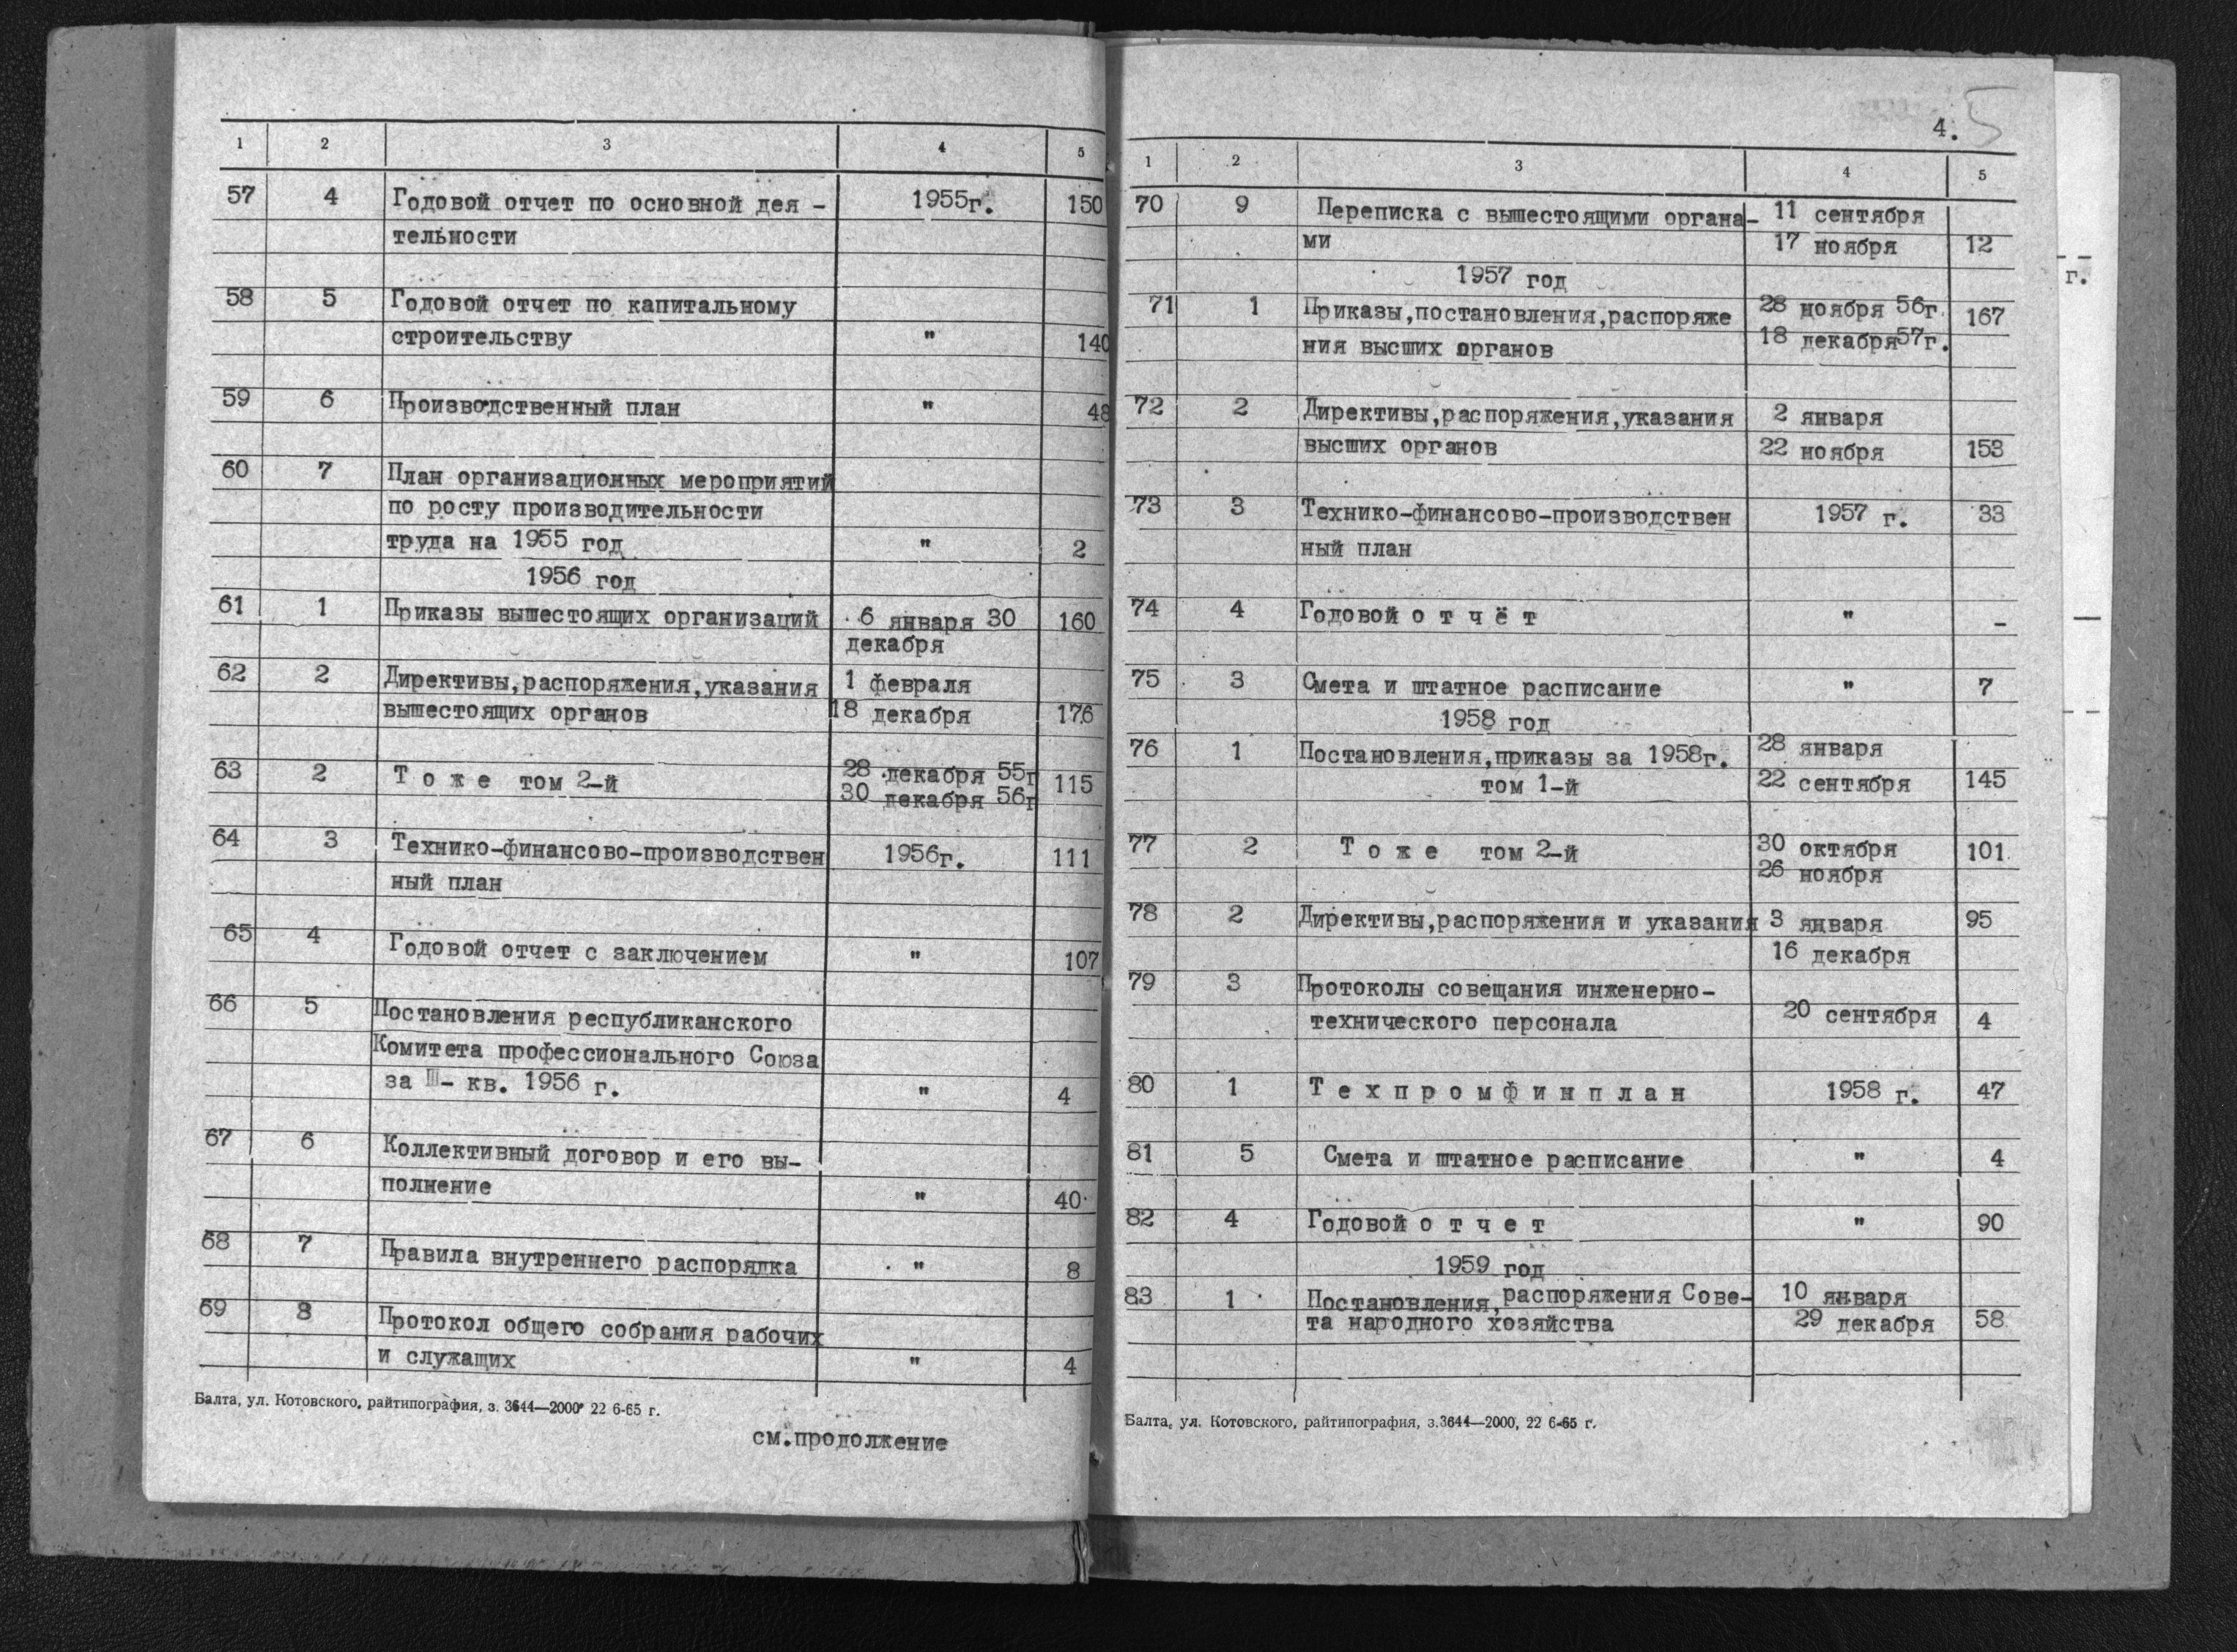 1 2 3 4 5
57 4 Годовой отчет по основной дея - 1955г. 150
тельности
58 5 Годовой отчет по капитальному
строительству " 140
59 6 Производственный план " 48
60 7 План организационных мероприятий
по росту производительности
труда на 1955 год " 2
1956 год
61 1 Приказы вышестоящих организаций 6 января 30 160
декабря
62 2 Директивы,распоряжения,указания 1 февраля
вышестоящих органов 18 декабря 176
63 2 Т о ж е том 2-й 28 декабря 55г 115
30 декабря 56г
64 3 Технико-финансово-производствен 1956г. 111
ный план
65 4 Годовой отчет с заключением " 107
66 5 Постановления республиканского
Комитета профессионального Союза
за III- кв. 1956 г. " 4
67 6 Коллективный договор и его вы-
полнение " 40
68 7 Правила внутреннего распорядка " 8
69 8 Протокол общего собрания рабочих
и служащих " 4
Балта, ул. Котовского, райтипография, з. 3644—2000 22 6-65 г.
см.продолжение
4. 5
1 2 3 4 5
70 9 Переписка с вышестоящими органа- 11 сентября
ми 17 ноября 12
1957 год
71 1 Приказы,постановления,распоряже 28 ноября 56г. 167
ния высших органов 18 декабря57г.
72 2 Директивы,распоряжения,указания 2 января
высших органов 22 ноября 153
73 3 Технико-финансово-производствен 1957 г. 33
ный план
74 4 Годовой о т ч ё т " -
75 3 Смета и штатное расписание " 7
1958 год
76 1 Постановления,приказы за 1958г. 28 января
том 1-й 22 сентября 145
77 2 Т о ж е том 2-й 30 октября 101
26 ноября
78 2 Директивы,распоряжения и указания 3 января 95
16 декабря
79 3 Протоколы совещания инженерно-
технического персонала 20 сентября 4
80 1 Т е х п р о м ф и н п л а н 1958 г. 47
81 5 Смета и штатное расписание " 4
82 4 Годовой о т ч е т " 90
1959 год
83 1 Постановления,распоряжения Сове- 10 января
та народного хозяйства 29 декабря 58
Балта, ул. Котовского, райтипография, з.3644—2000, 22 6-65 г.
г.